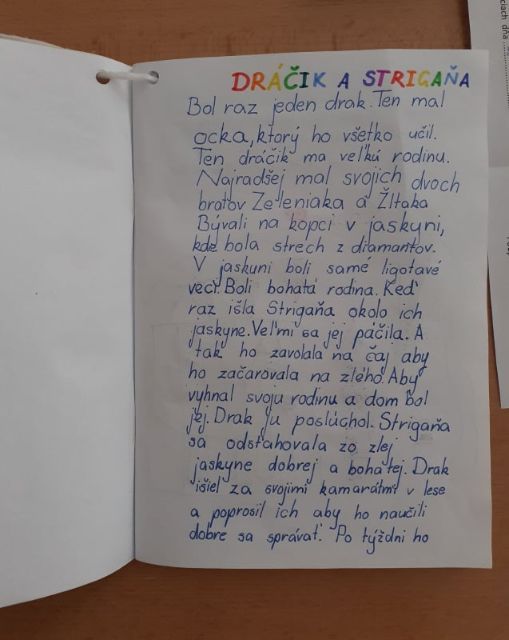 DRÁČIK A STRIGAŇA
Bol raz jeden drak. Ten mal
ocka, ktorý ho všetko učil.
Ten dráčik ma veľkú rodinu.
Najradšej mal svojich dvoch
bratov Zeleniaka a Žltaka
Bývali na kopci v jaskyni,
kde bola strech z diamantov.
V jaskuni boli samé ligotavé
veci. Boli bohatá rodina. Keď
raz išla Strigaňa okolo ich
jaskyne. Veľmi sa jej páčila. A
tak ho zavolala na čaj aby
ho začarovala na zlého. Aby
vyhnal svoju rodinu a dom bol
jej. Drak ju poslúchol. Strigaňa
sa odsťahovala zo zlej
jaskyne dobrej a bohatej. Drak
išiel za svojimi kamarátmi v lese
a poprosil ich aby ho naučili
dobre sa správať. Po týždni ho